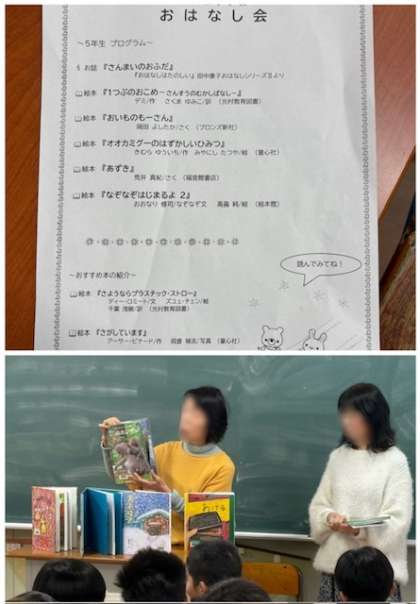 おはなし会
～5年生 プログラム～
お話 『さんまいのおふだ』
📖絵本 『1つぶのおこめ～さんすうのむかしばなし～』
デミ/作 さくま ゆみこ/訳 (光村教育図書)
📖絵本 『おいものもーさん』
岡田 よしたか/さく (ブロンズ新社)
📖絵本 『オオカミグーのはずかしいひみつ』
きむら ゆういち/作 みやにし たつや/絵 (童心社)
📖絵本 『あずき』
荒井 真紀/さく (福音館書店)
📖絵本 『なぞなぞはじまるよ 2』
おおなり 修司/なぞなぞ文 高畠 純/絵 (絵本館)
～おすすめ本の紹介～
読んでみてね！
📖絵本 『さようならプラスチック・ストロー』
ディー・ロミート/文 ズユェ・チェン/絵
千葉 茂樹/訳 (光村教育図書)
📖絵本 『さがしています』
アーサー・ビナード/作 岡倉 禎志/写真 (童心社)
あずき